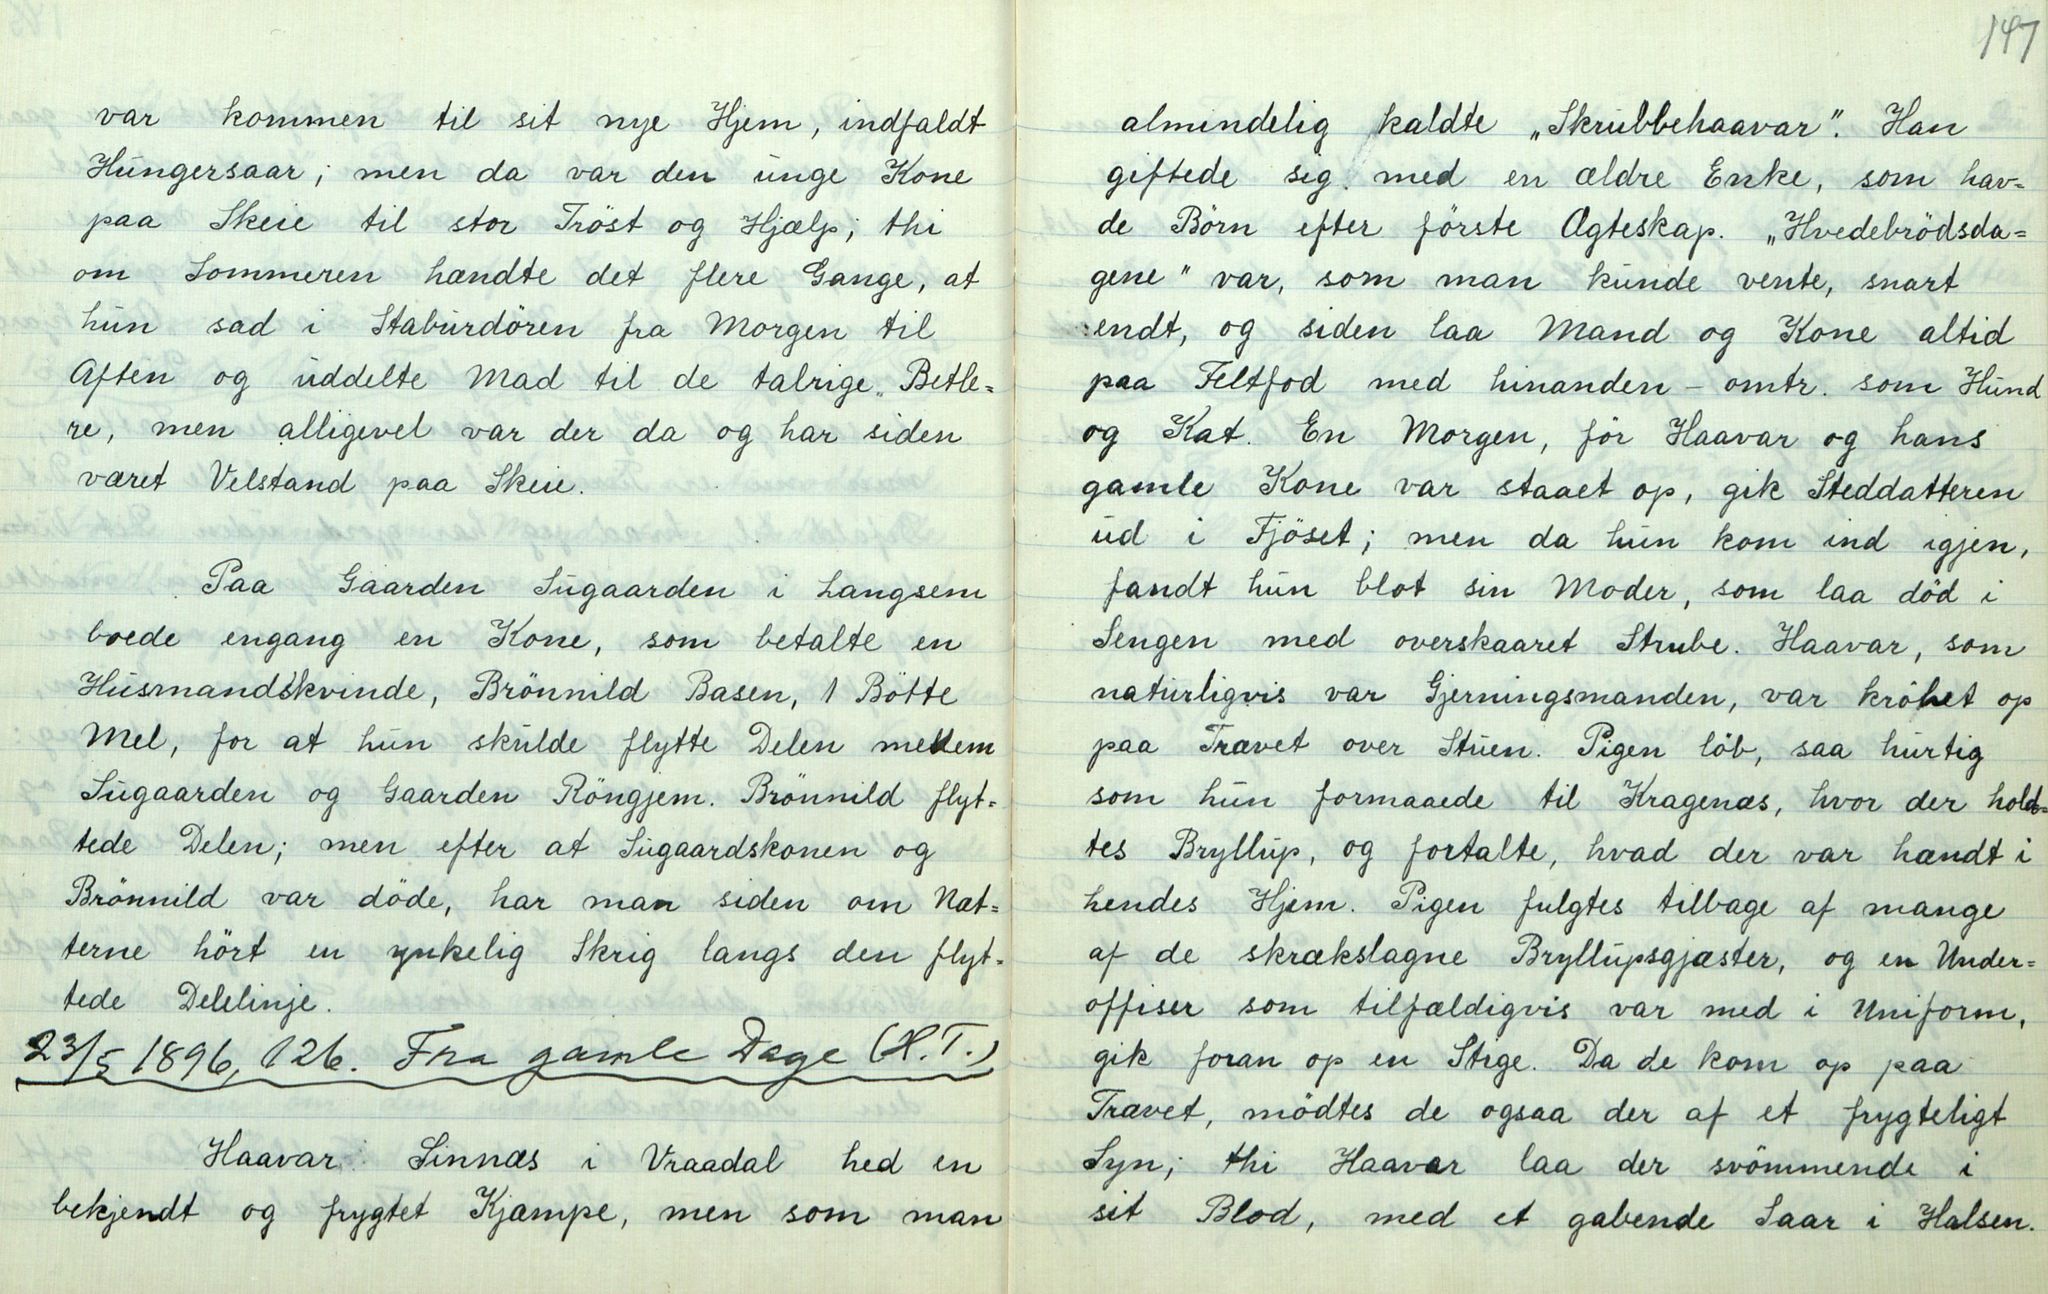 var kommen til sit nye Hjem, indfaldt
Hungersaar; men da var den unge Kone
paa Skeie til stor Tröst og Hjælp; thi
om Sommeren hændte det flere Gange, at
hun sad i Staburdören fra Morgen til
Aften og uddelte Mad til de talrige Betle=
re, men alligevel var der da og har siden
været Velstand paa Skeie.
Paa Gaarden Sugaarden i Langsem
boede engang en Kone, som betalte en
Husmandskvinde, Brönnild Basen, 1 Bötte
Mel, for at hun skulde flytte Delen mellem
Sugaarden og Gaarden Röngjem. Brönnild flyt=
tede Delen; men efter at Sugaardskonen og
Brönnild var döde, har man siden om Næt=
terne hört en ynkelig Skrig langs den flyt=
tede Delelinje.
23/5 1896, 126. Fra gamle Dage (H.T.)
Haavar Sinnæs i Vraadal hed en
bekjendt og frygtet Kjæmpe, men som man
147
almindelig kaldte „Skrubbehaavar". Han
giftede sig med en ældre Enke, som hav=
de Börn efter förste Ægteskap. „Hvedebrödsda=
gene" var, som man kunde vente, snart
endt, og siden laa Mand og Kone altid
paa Feltfod med hinanden - omtr. som Hund
og Kat. En Morgen, för Haavar og hans
gamle Kone var staaet op, gik Steddatteren
ud i Fjöset; men da hun kom ind igjen,
fandt hun blot sin Moder, som laa död i
Sengen med overskaaret Strube. Haavar, som
naturligvis var Gjerningsmanden, var kröbet op
paa Travet over Stuen. Pigen löb, saa hurtig
som hun formaaede til Kragenæs, hvor der hold=
tes Bryllup, og fortalte, hvad der var hændt i
hendes Hjem. Pigen fulgtes tilbage af mange
af de skrækslagne Bryllupsgjæster, og en Under=
offiser som tilfældigvis var med i Uniform,
gik foran op en Stige. Da de kom op paa
Travet, mödtes de ogsaa der af et frygteligt
Syn; thi Haavar laa der svömmende i
sit Blod, med et gabende Saar i Halsen.